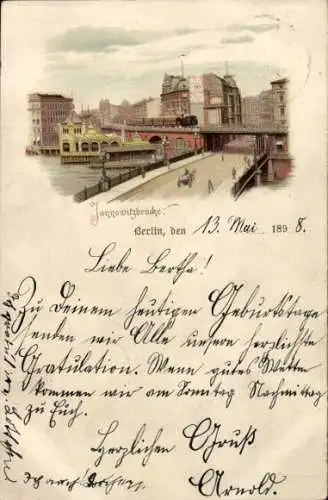 Jannowitzbrücke.
Berlin, den 13. Mai 1898.
Liebe Bertha!
Zu Deinem heutigen Geburtstage
senden wir Alle unsern herzlichste
Gratulation. Wenn gutes Wetter
kommen wir am Sonntag Nachmittag
zu Euch.
Herzlichen Gruß
Arnold.